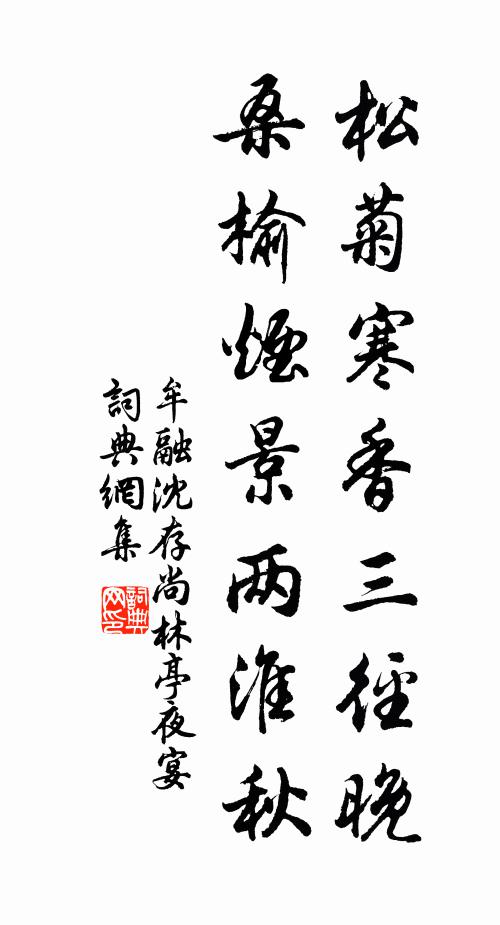 松菊寒香三徑晚
桑榆煙景两淮秋
牟融沈存尚林亭夜宴
詞典網集
詞典
网印